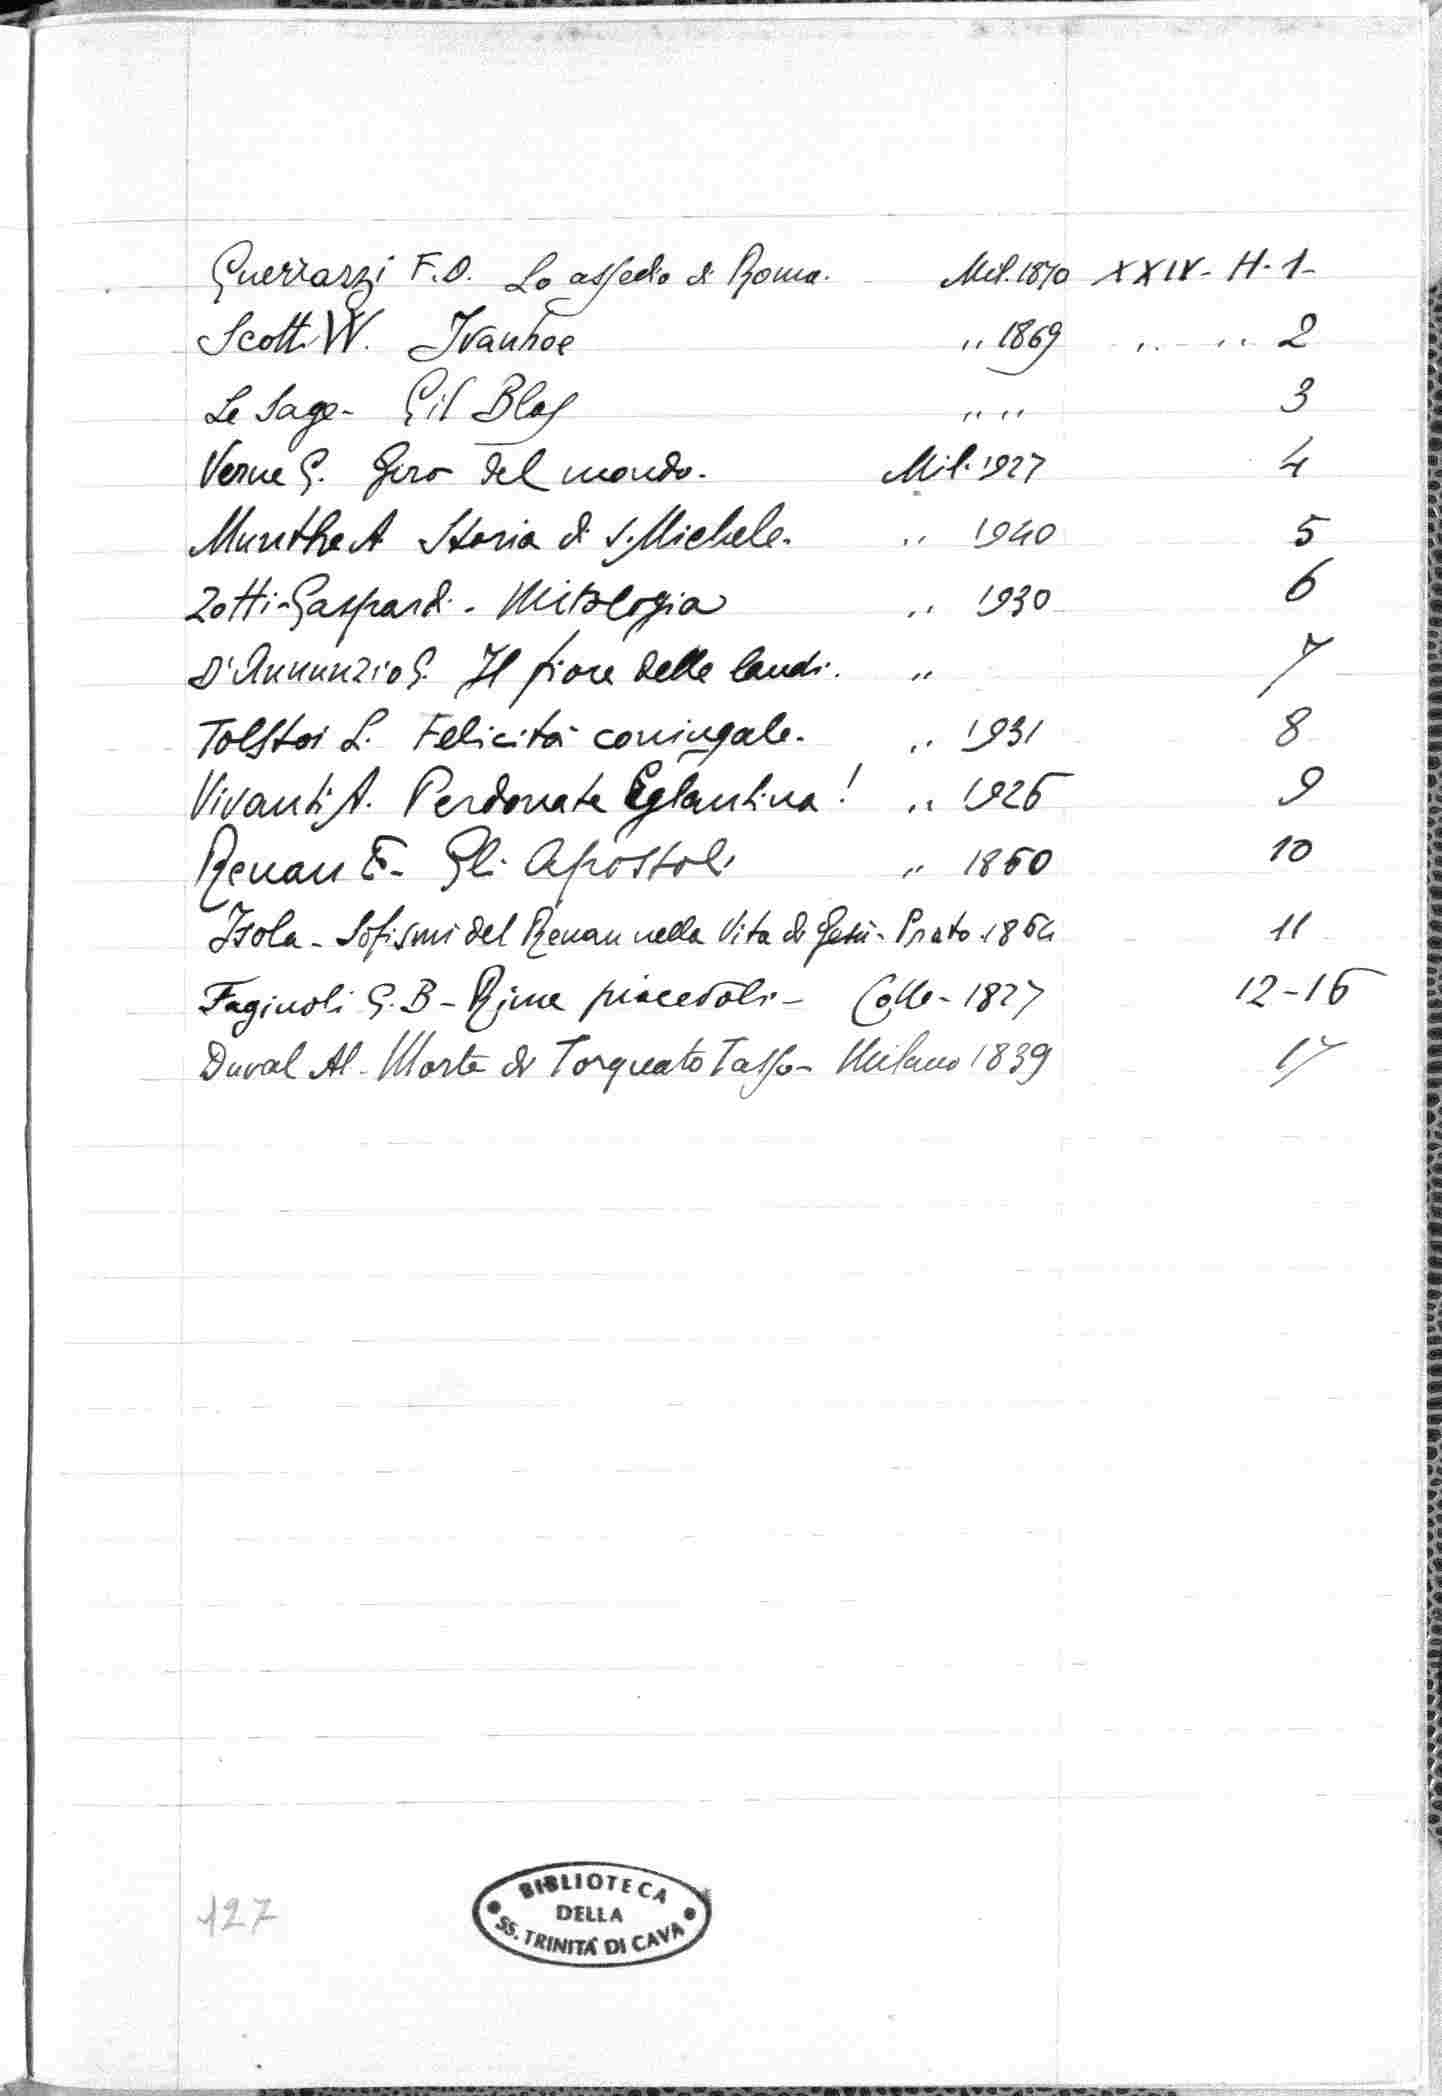 Guerrazzi F.D. Lo assedio di Roma. Mil. 1870 XXIV - H - 1 -
Scott. W. Ivanhoe ,, 1869 ,, ,, 2
Le Sage - Gil Blas ,, ,, 3
Verne G. Giro del mondo. Mil. 1927 4
Munthe A Storia di S. Michele. ,, 1940 5
Zotti - Gaspardi. - Mitologia ,, 1930 6
D'Annunzio G. Il fiore delle laudi. ,, 7
Tolstoi L. Felicità coniugale. ,, 1931 8
Vivanti A. Perdonate Eglantina! ,, 1926 9
Renan E - Gli Apostoli ,, 1860 10
Isola - Sofismi del Renan nella Vita di Gesù - Prato 1864 11
Faginoli G. B - Rime piacevoli - Colle - 1827 12 - 16
Duval Al - Morte di Torquato Tasso - Milano 1839 17
127
BIBLIOTECA
DELLA
SS. TRINITÁ DI CAVA